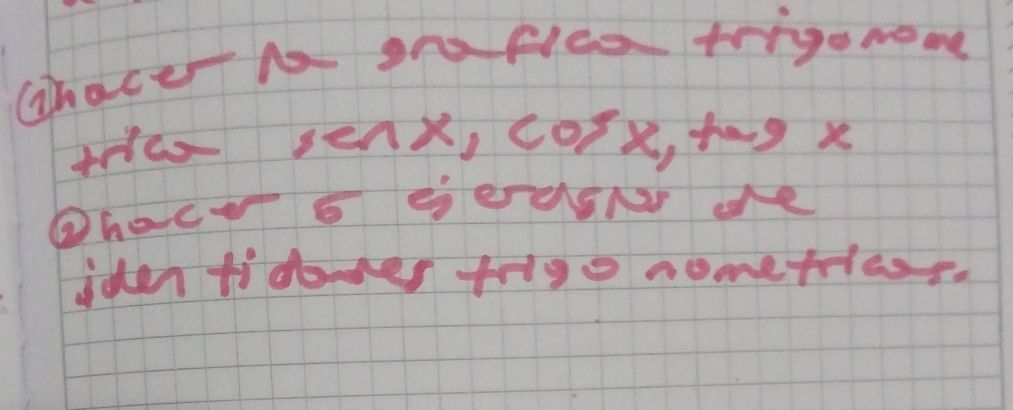 ① hacer la grafica trigonome
trica sen x, cos x, tag x
② hacer 5 ejercicios de
identidades trigonometricas.